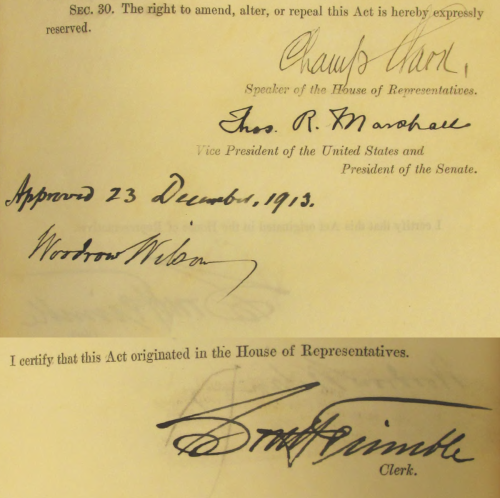 SEC. 30. The right to amend, alter, or repeal this Act is hereby expressly
reserved.
Champ Clark,
Speaker of the House of Representatives.
Thos. R. Marshall
Vice President of the United States and
President of the Senate.
Approved 23 December, 1913.
Woodrow Wilson
I certify that this Act originated in the House of Representatives.
South Trimble
Clerk.